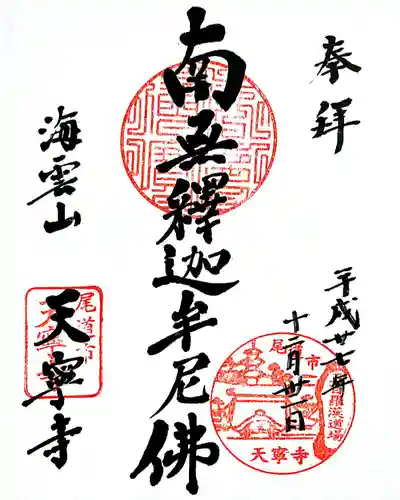 奉拝
平成廿七年
十二月廿一日
南無釋迦牟尼佛
海雲山
天寧寺
尾道市
尾道市
羅漢道場
天寧寺